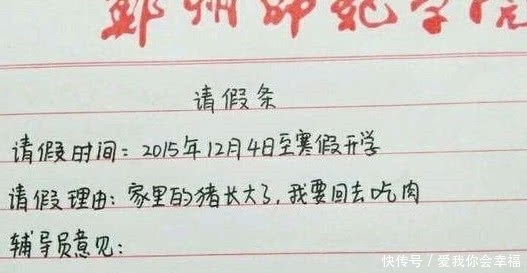 郑州师范学院
请假条
请假时间：2015年12月4日至寒假开学
请假理由：家里的猪长大了，我要回去吃肉
辅导员意见：
快传号／爱我你会幸福